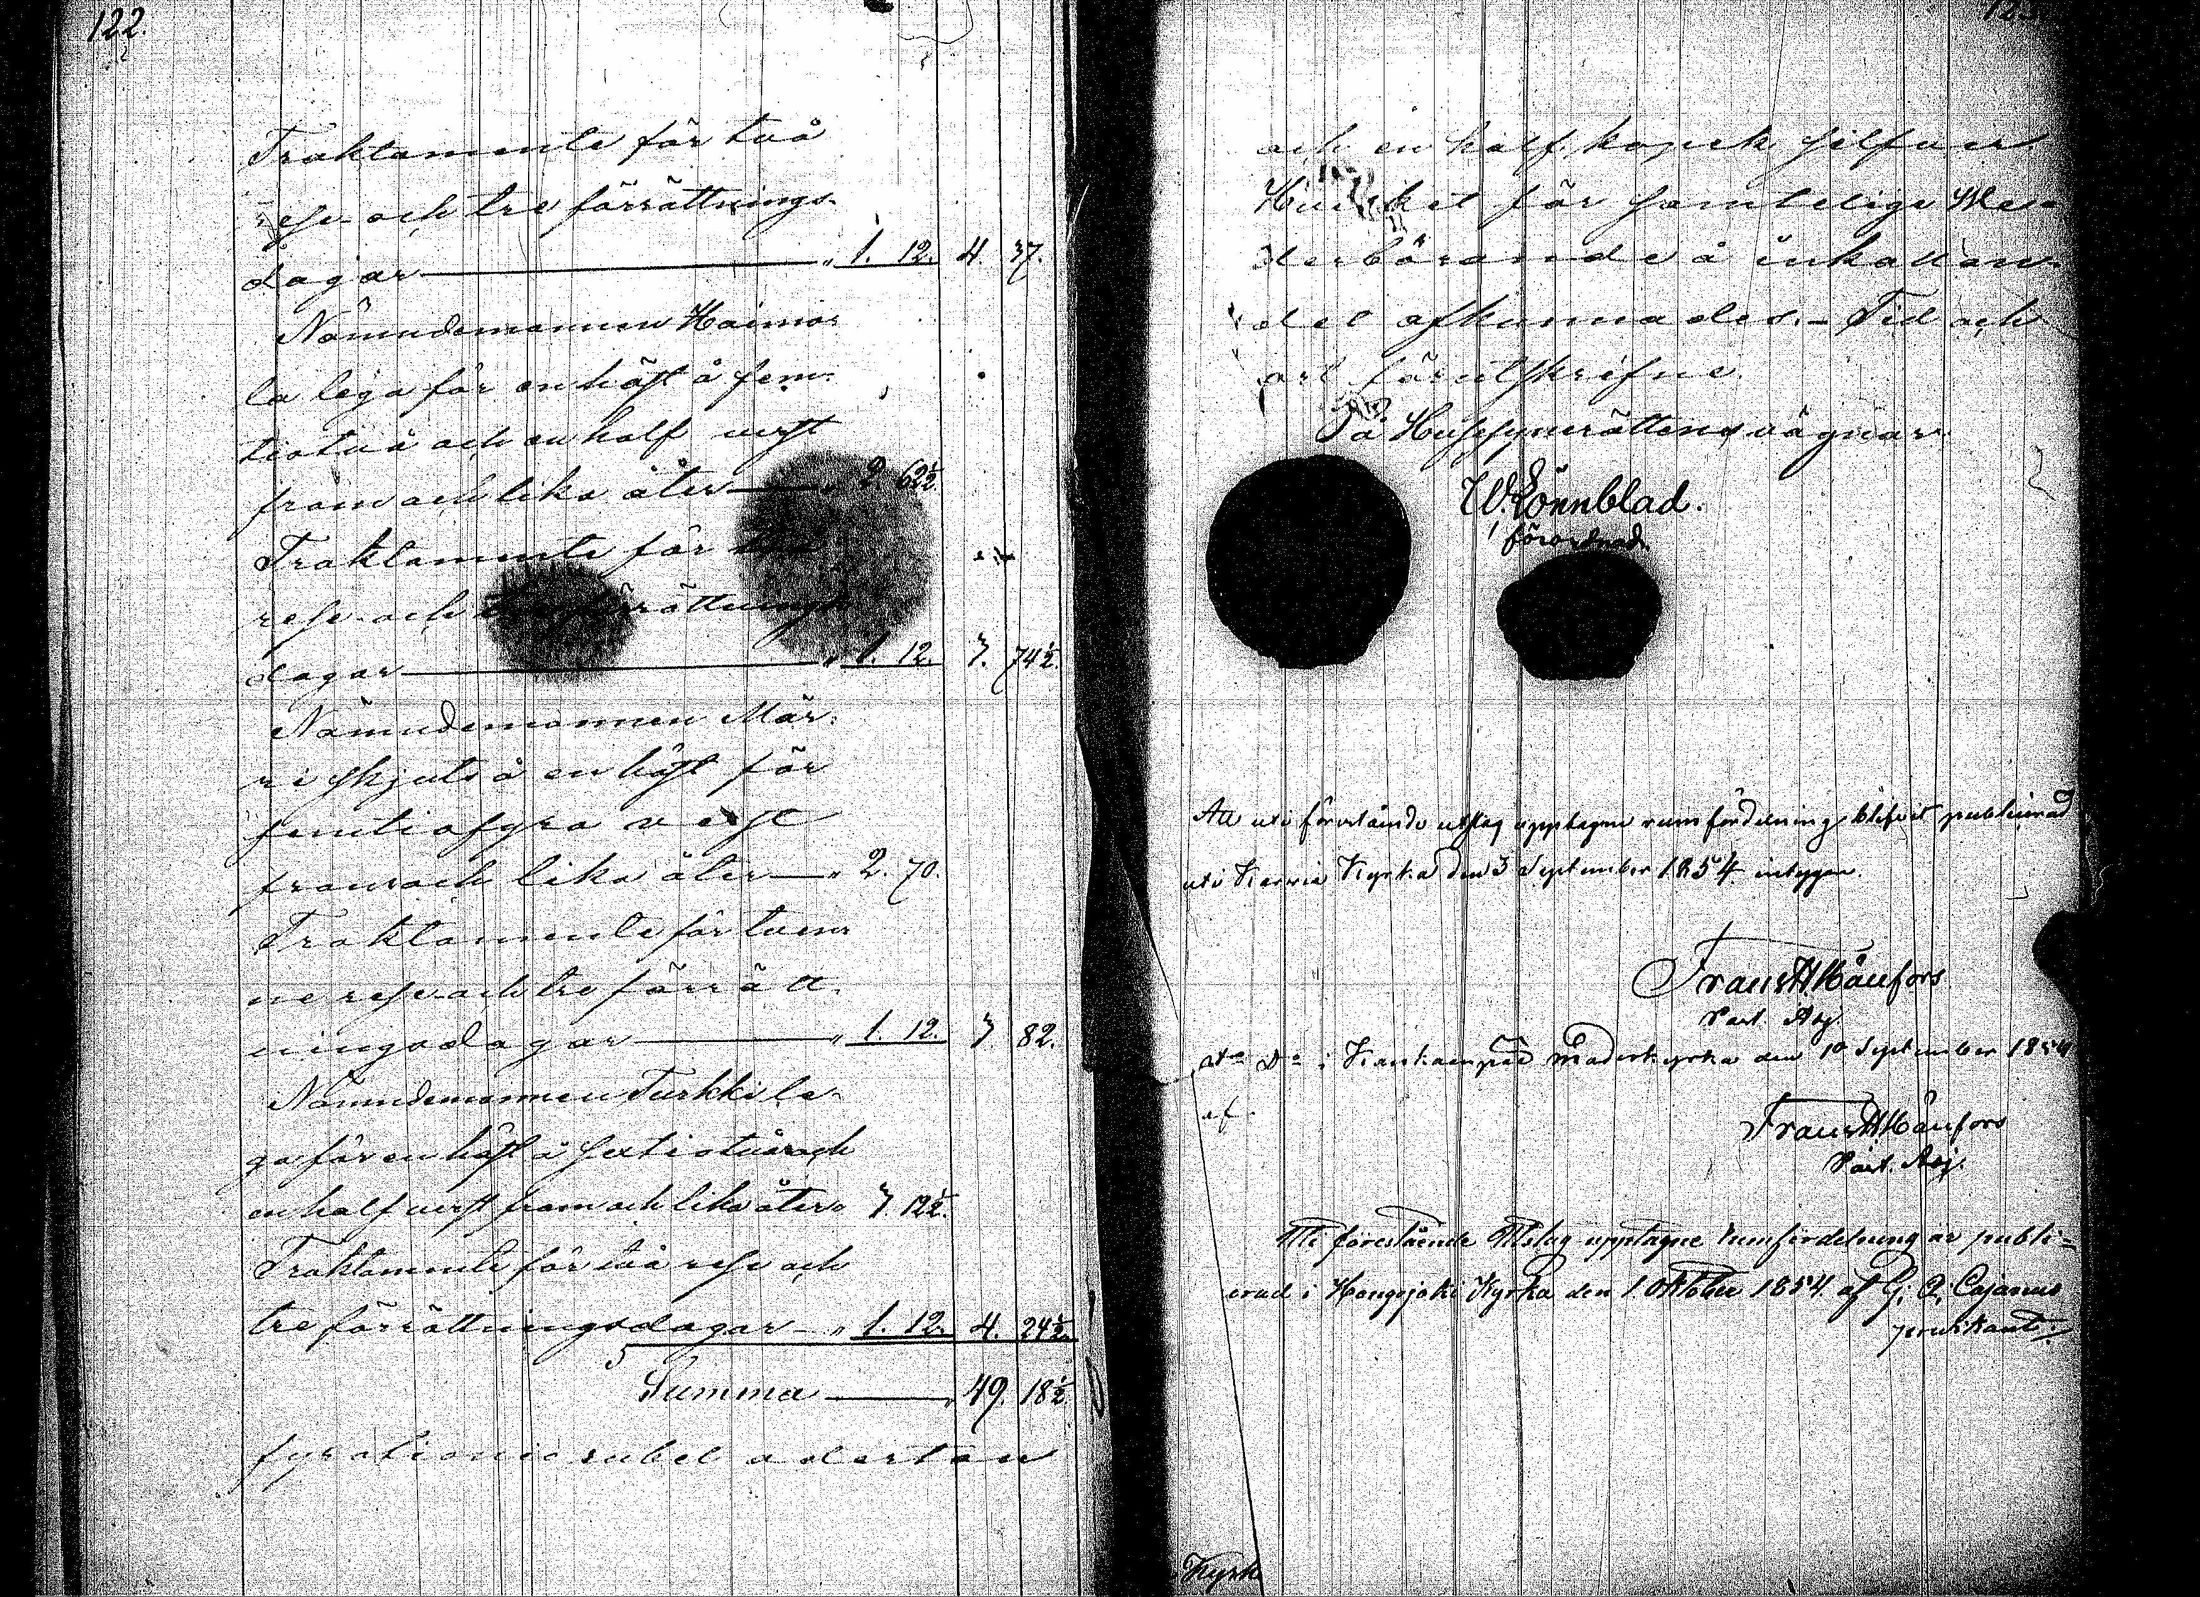 122.
Traktamente för två
rese- och tre förrättnings-
dagar — „ 1. 12. 4. 37.
Nämndemannen Haimo-
la lega för en häst å fem-
tiotvå och en half verst
fram och lika åter — „ 2. 62½.
Traktamente för två
rese- och tre förrättnings
dagar — „ 1. 12. 3. 74½.
Nämndemannen Mär-
ri skjuts å en häst för
femtiofyra verst
fram och lika åter — „ 2. 70.
Traktamente för tven-
ne rese- och tre förrätt-
ningsdagar — „ 1. 12. 3 82.
Nämndemannen Turkki le-
ga för en häst å sextiotvå och
en half verst fram och lika åter „ 3. 12½.
Traktamente för två rese och
tre förrättningsdagar — „ 1. 12. 4. 24½.
Summa — „ 49. 18½.
fyrationio rubel aderton
och en half kopek silfver
Hvilket för samtelige We-
derbörande å inkallan-
det afkunnades. – Tid och
ort förutskrifne.
På Husesynerättens vägnar
W. Lönnblad.
förordnad.
Att uti förestående utslag upptagne rumfördelning blifvit publicerad
uti Karvia Kyrka den 3 September 1854 intygar.
Frans H Kånfors
Past. Adj.
At= D= i Kankaanpää Moderkyrka den 10 September 1854
af
Frans H Kånfors
Past. Adj.
Uti förestående Utslag upptagne rumfördelning är publi-
cerad i Hongojoki Kyrka den 1 Oktober 1854 af G. A. Cajanus
Kyrk